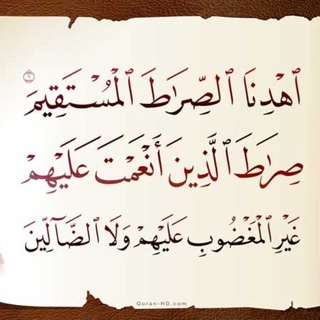 ٱهْدِنَا ٱلصِّرَٰطَ ٱلْمُسْتَقِيمَ ٦
صِرَٰطَ ٱلَّذِينَ أَنْعَمْتَ عَلَيْهِمْ
غَيْرِ ٱلْمَغْضُوبِ عَلَيْهِمْ وَلَا ٱلضَّآلِّينَ
Quran-HD.com